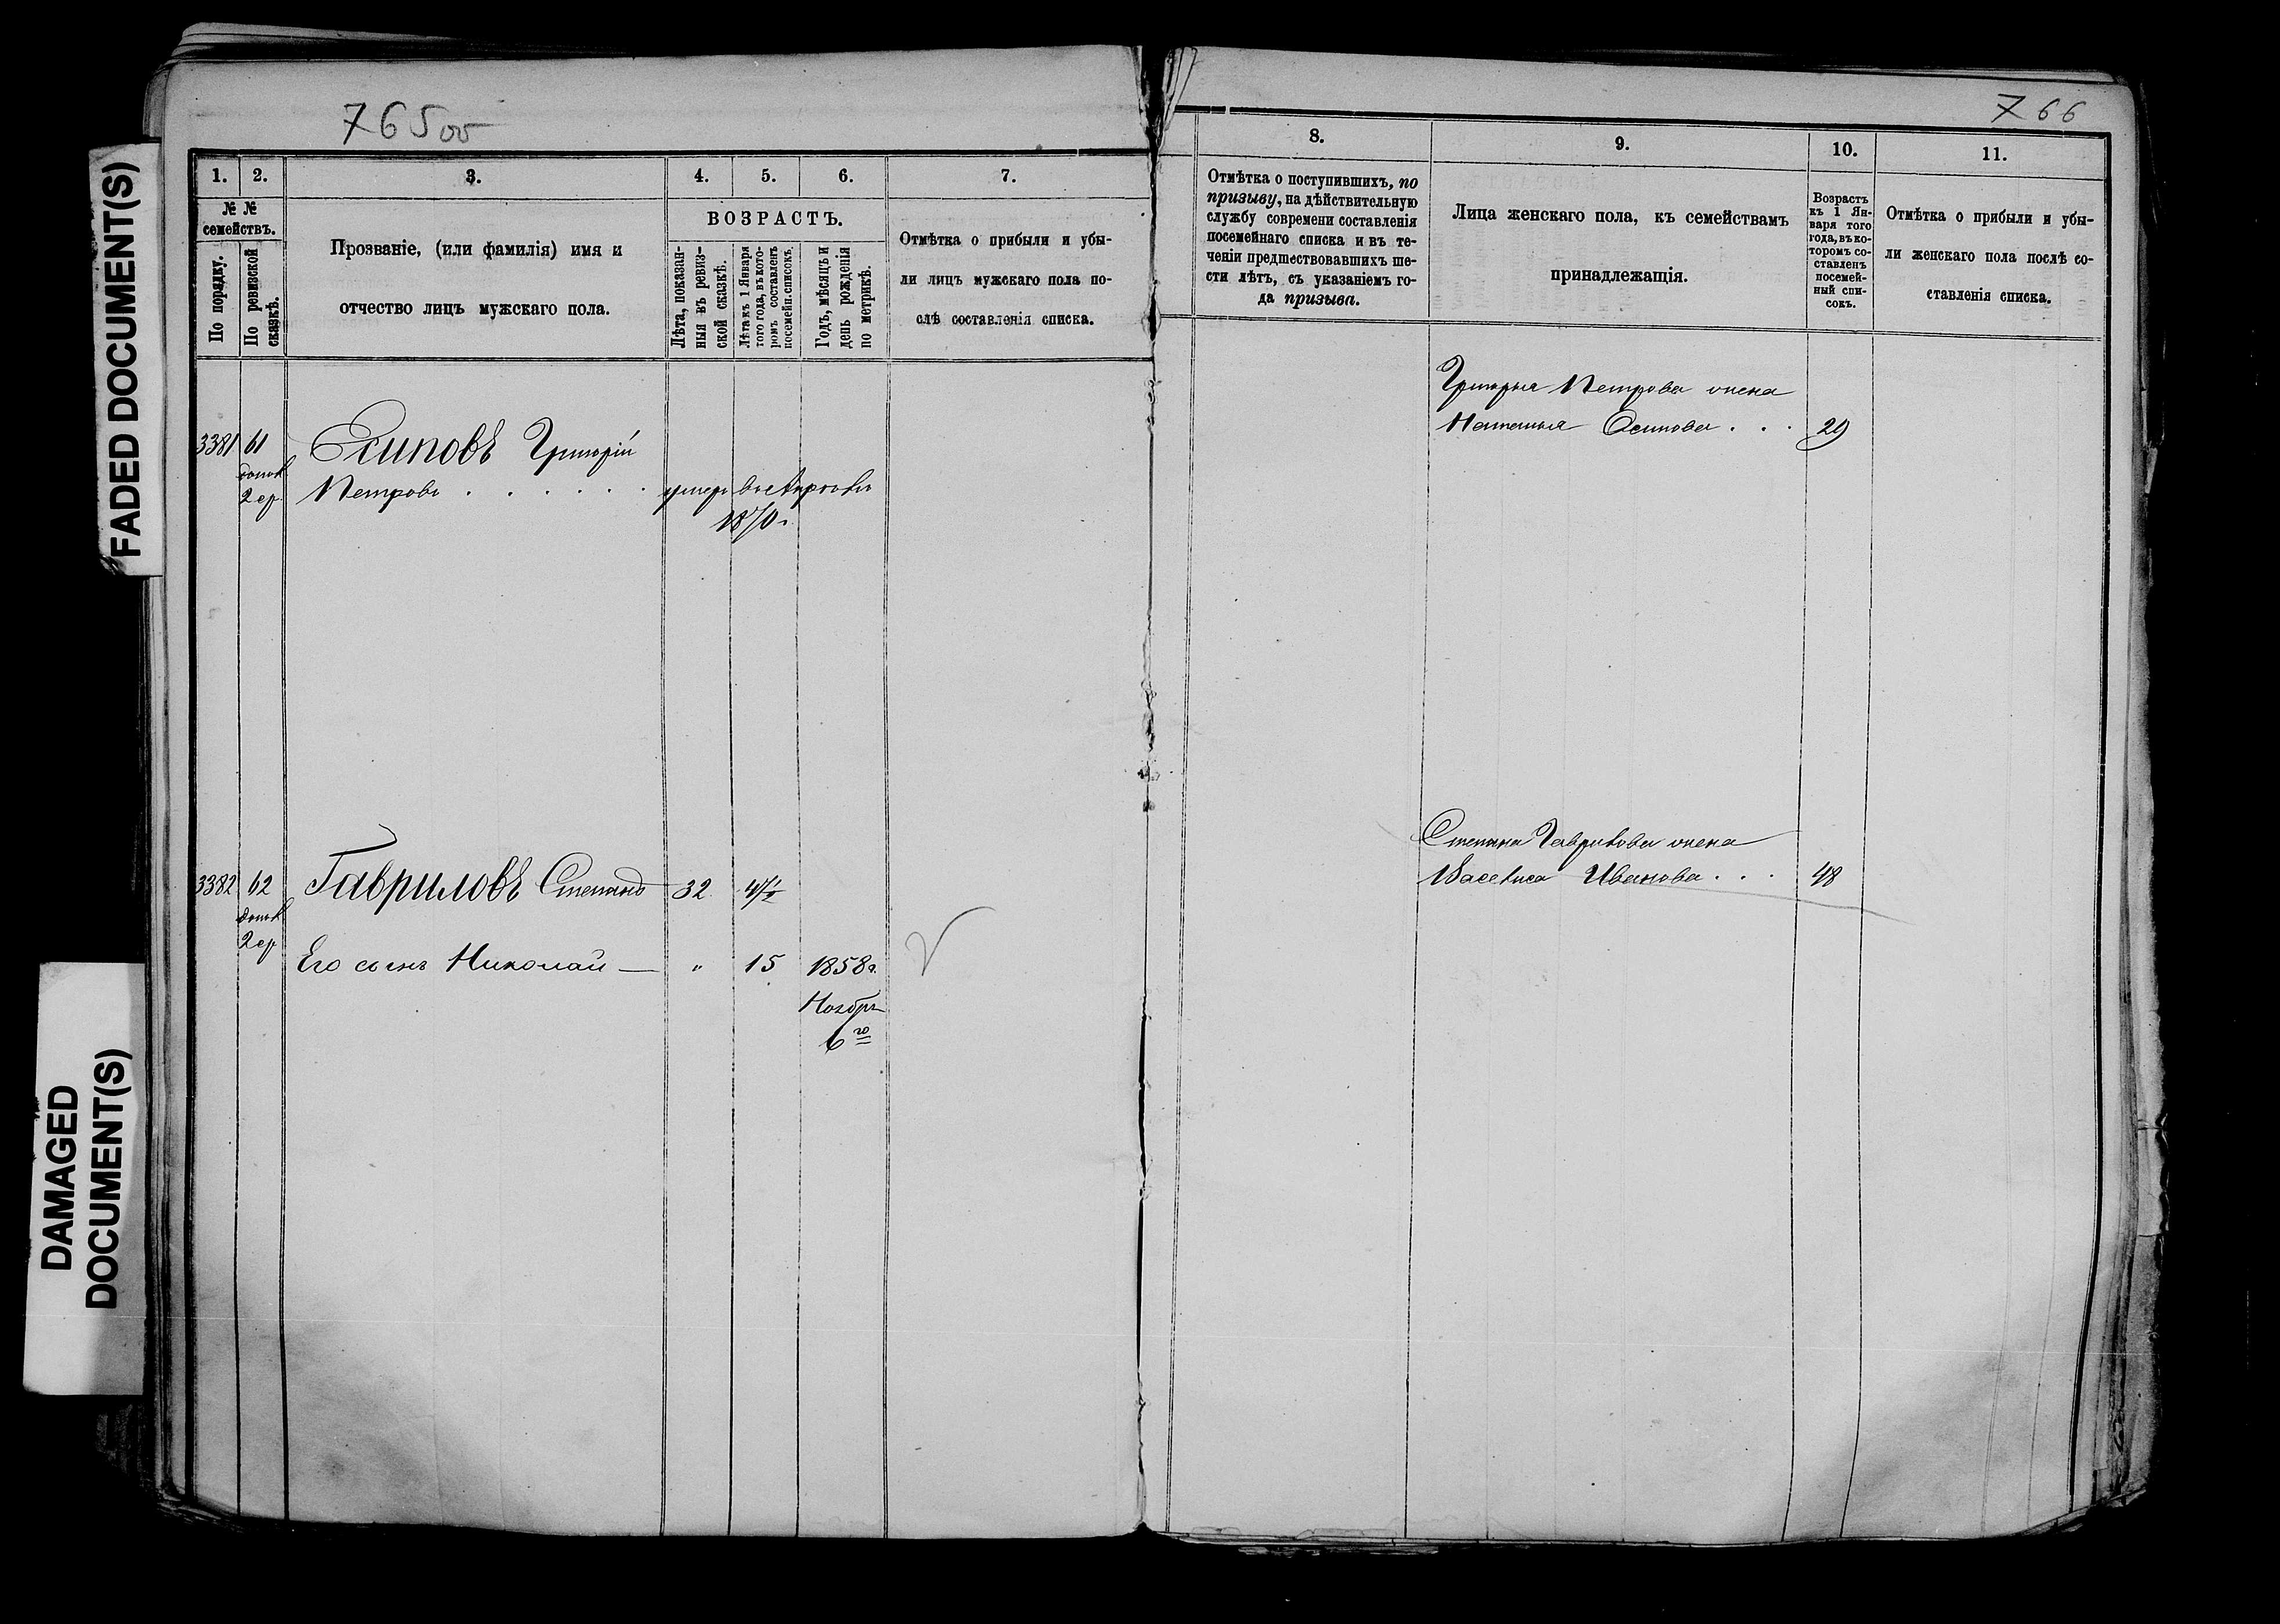 FADED DOCUMENT(S)
DAMAGED
DOCUMENT(S)
765об
1.
2.
3.
4.
5.
6.
7.
№ №
семействъ.
По порядку.
По ревизской
сказкѣ.
Прозваніе, (или фамилія) имя и
отчество лицъ мужскаго пола.
ВОЗРАСТЪ.
Лѣта, показан-
ныя въ ревиз-
ской сказкѣ.
Лѣта къ 1 Января
того года, въ кото-
ромъ составленъ
посемейн. списокъ.
Годъ, мѣсяцъ и
день рожденія
по метрикѣ.
Отмѣтка о прибыли и убы-
ли лицъ мужскаго пола по-
слѣ составленія списка.
3381 61 Есиповъ Григорій
2 ср. Петровъ . . . . . . умеръ
1870 г.
3382 62 Гавриловъ Степанъ 32 47
2 ср
Его сынъ Николай — " 15 1858 г.
Ноябр
6го
766
8.
9.
10.
11.
Отмѣтка о поступившихъ, по
призыву, на дѣйствительную
службу современи составленія
посемейнаго списка и въ те-
ченіи предшествовавшихъ ше-
сти лѣтъ, съ указаніемъ го-
да призыва.
Лица женскаго пола, къ семействамъ
принадлежащія.
Возрастъ
къ 1 Ян-
варя того
года, въ ко-
торомъ со-
ставленъ
посемей-
ный спи-
сокъ.
Отмѣтка о прибыли и убы-
ли женскаго пола послѣ со-
ставленія списка.
Григорья Петрова жена
Наталья Осипова . . . 29
Степана Гаврилова жена
Васелиса Иванова . . . 48